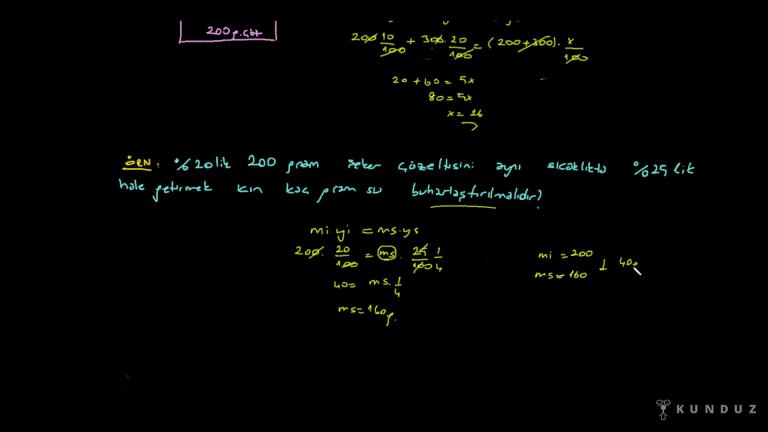 200 g.çöz
200 10/100 + 300.20/100 = (200+300).x/100
20 + 60 = 5x
80 = 5x
x = 16
ÖRN: %20lik 200 gram şeker çözeltisini aynı sıcaklıkta %25 lik
hale getirmek için kaç gram su buharlaştırılmalıdır?
mi.yi = ms.ys
200. 20/100 = ms . 25/100 1/4
40 = ms.1/4
ms = 160g.
mi = 200
ms = 160 ↓ 40g
KUNDUZ